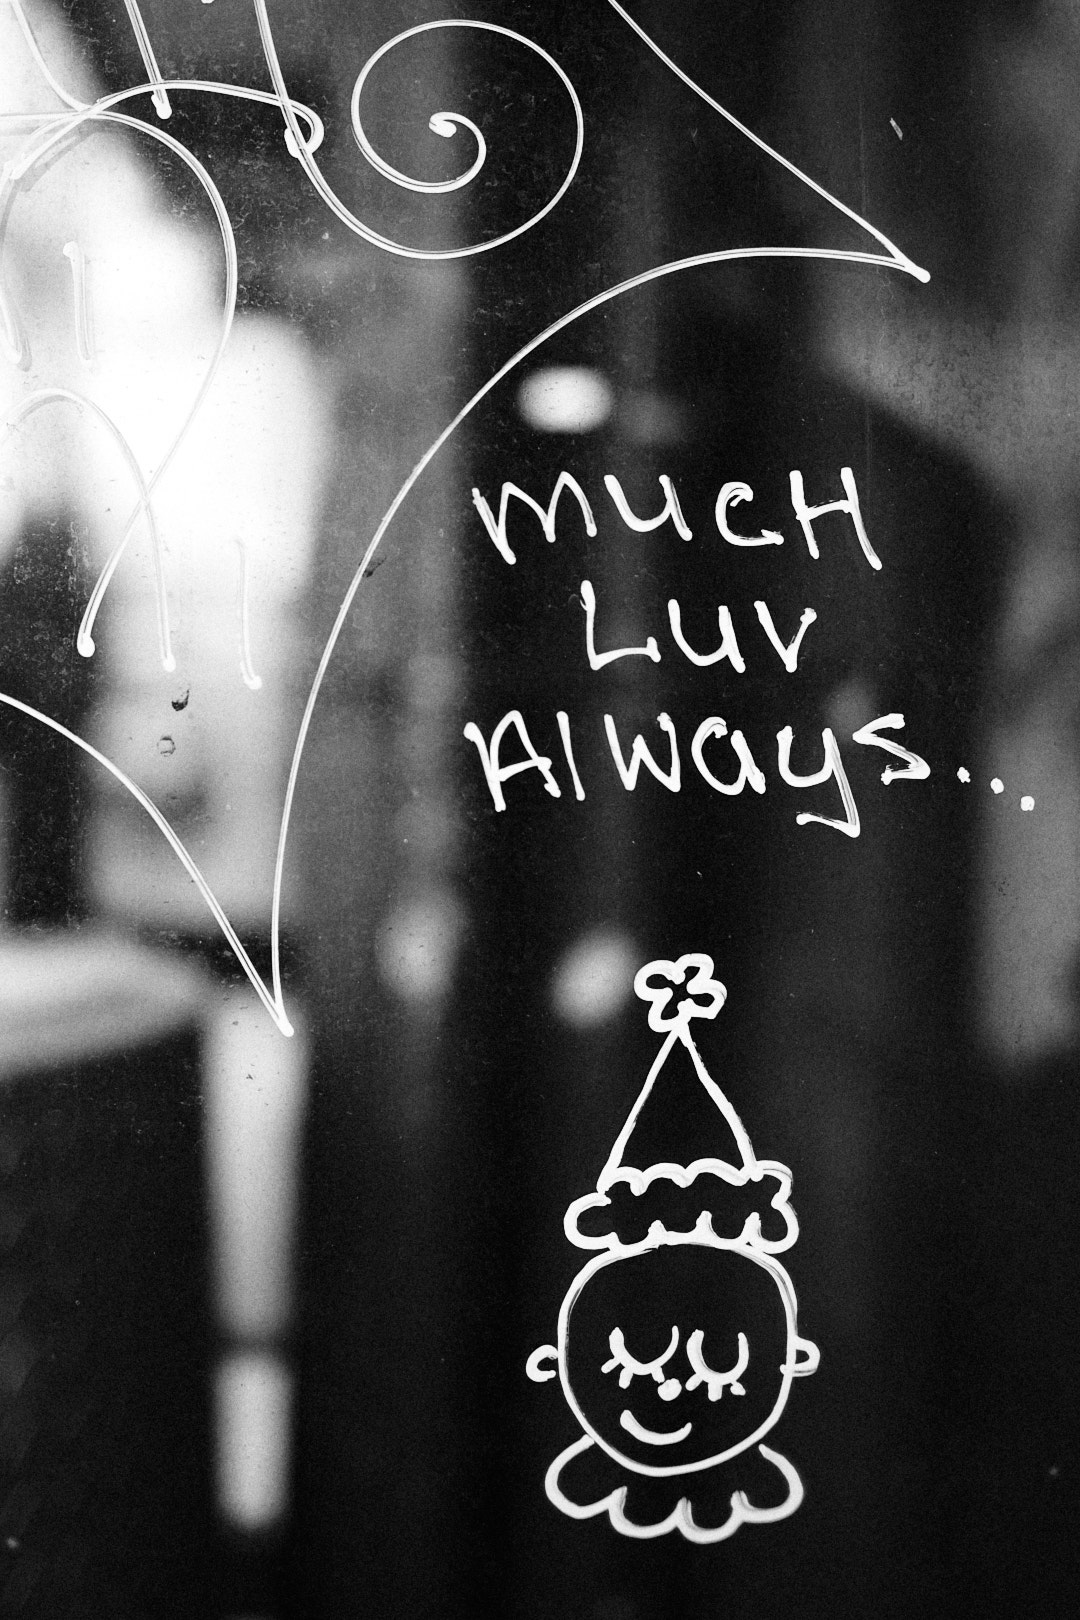 MUCH
LUV
Always...